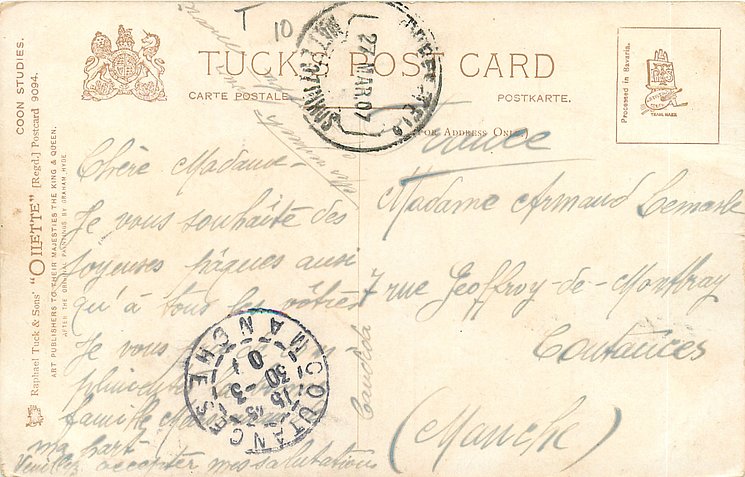 COON STUDIES.
Raphael Tuck & Sons' "OILETTE" [Regd.] Postcard 9094.
ART PUBLISHERS TO THEIR MAJESTIES THE KING & QUEEN.
AFTER THE ORIGINAL PAINTINGS BY GRAHAM HYDE
T
10
TUCK'S POST CARD
CARTE POSTALE
POSTKARTE.
(FOR ADDRESS ONLY.)
27 MAR 07
Processed in Bavaria.
Chère Madame
Je vous souhaite des
Joyeuses Pâques aussi
qu'à tous les vôtres
Je vous
famille
ma part
Veuillez accepter mes salutations
Candida
France
Madame Armand Lemarle
7 rue Geoffroy-de-Montbray
Coutances
(Manche)
COUTANCES
MANCHE
30 -3